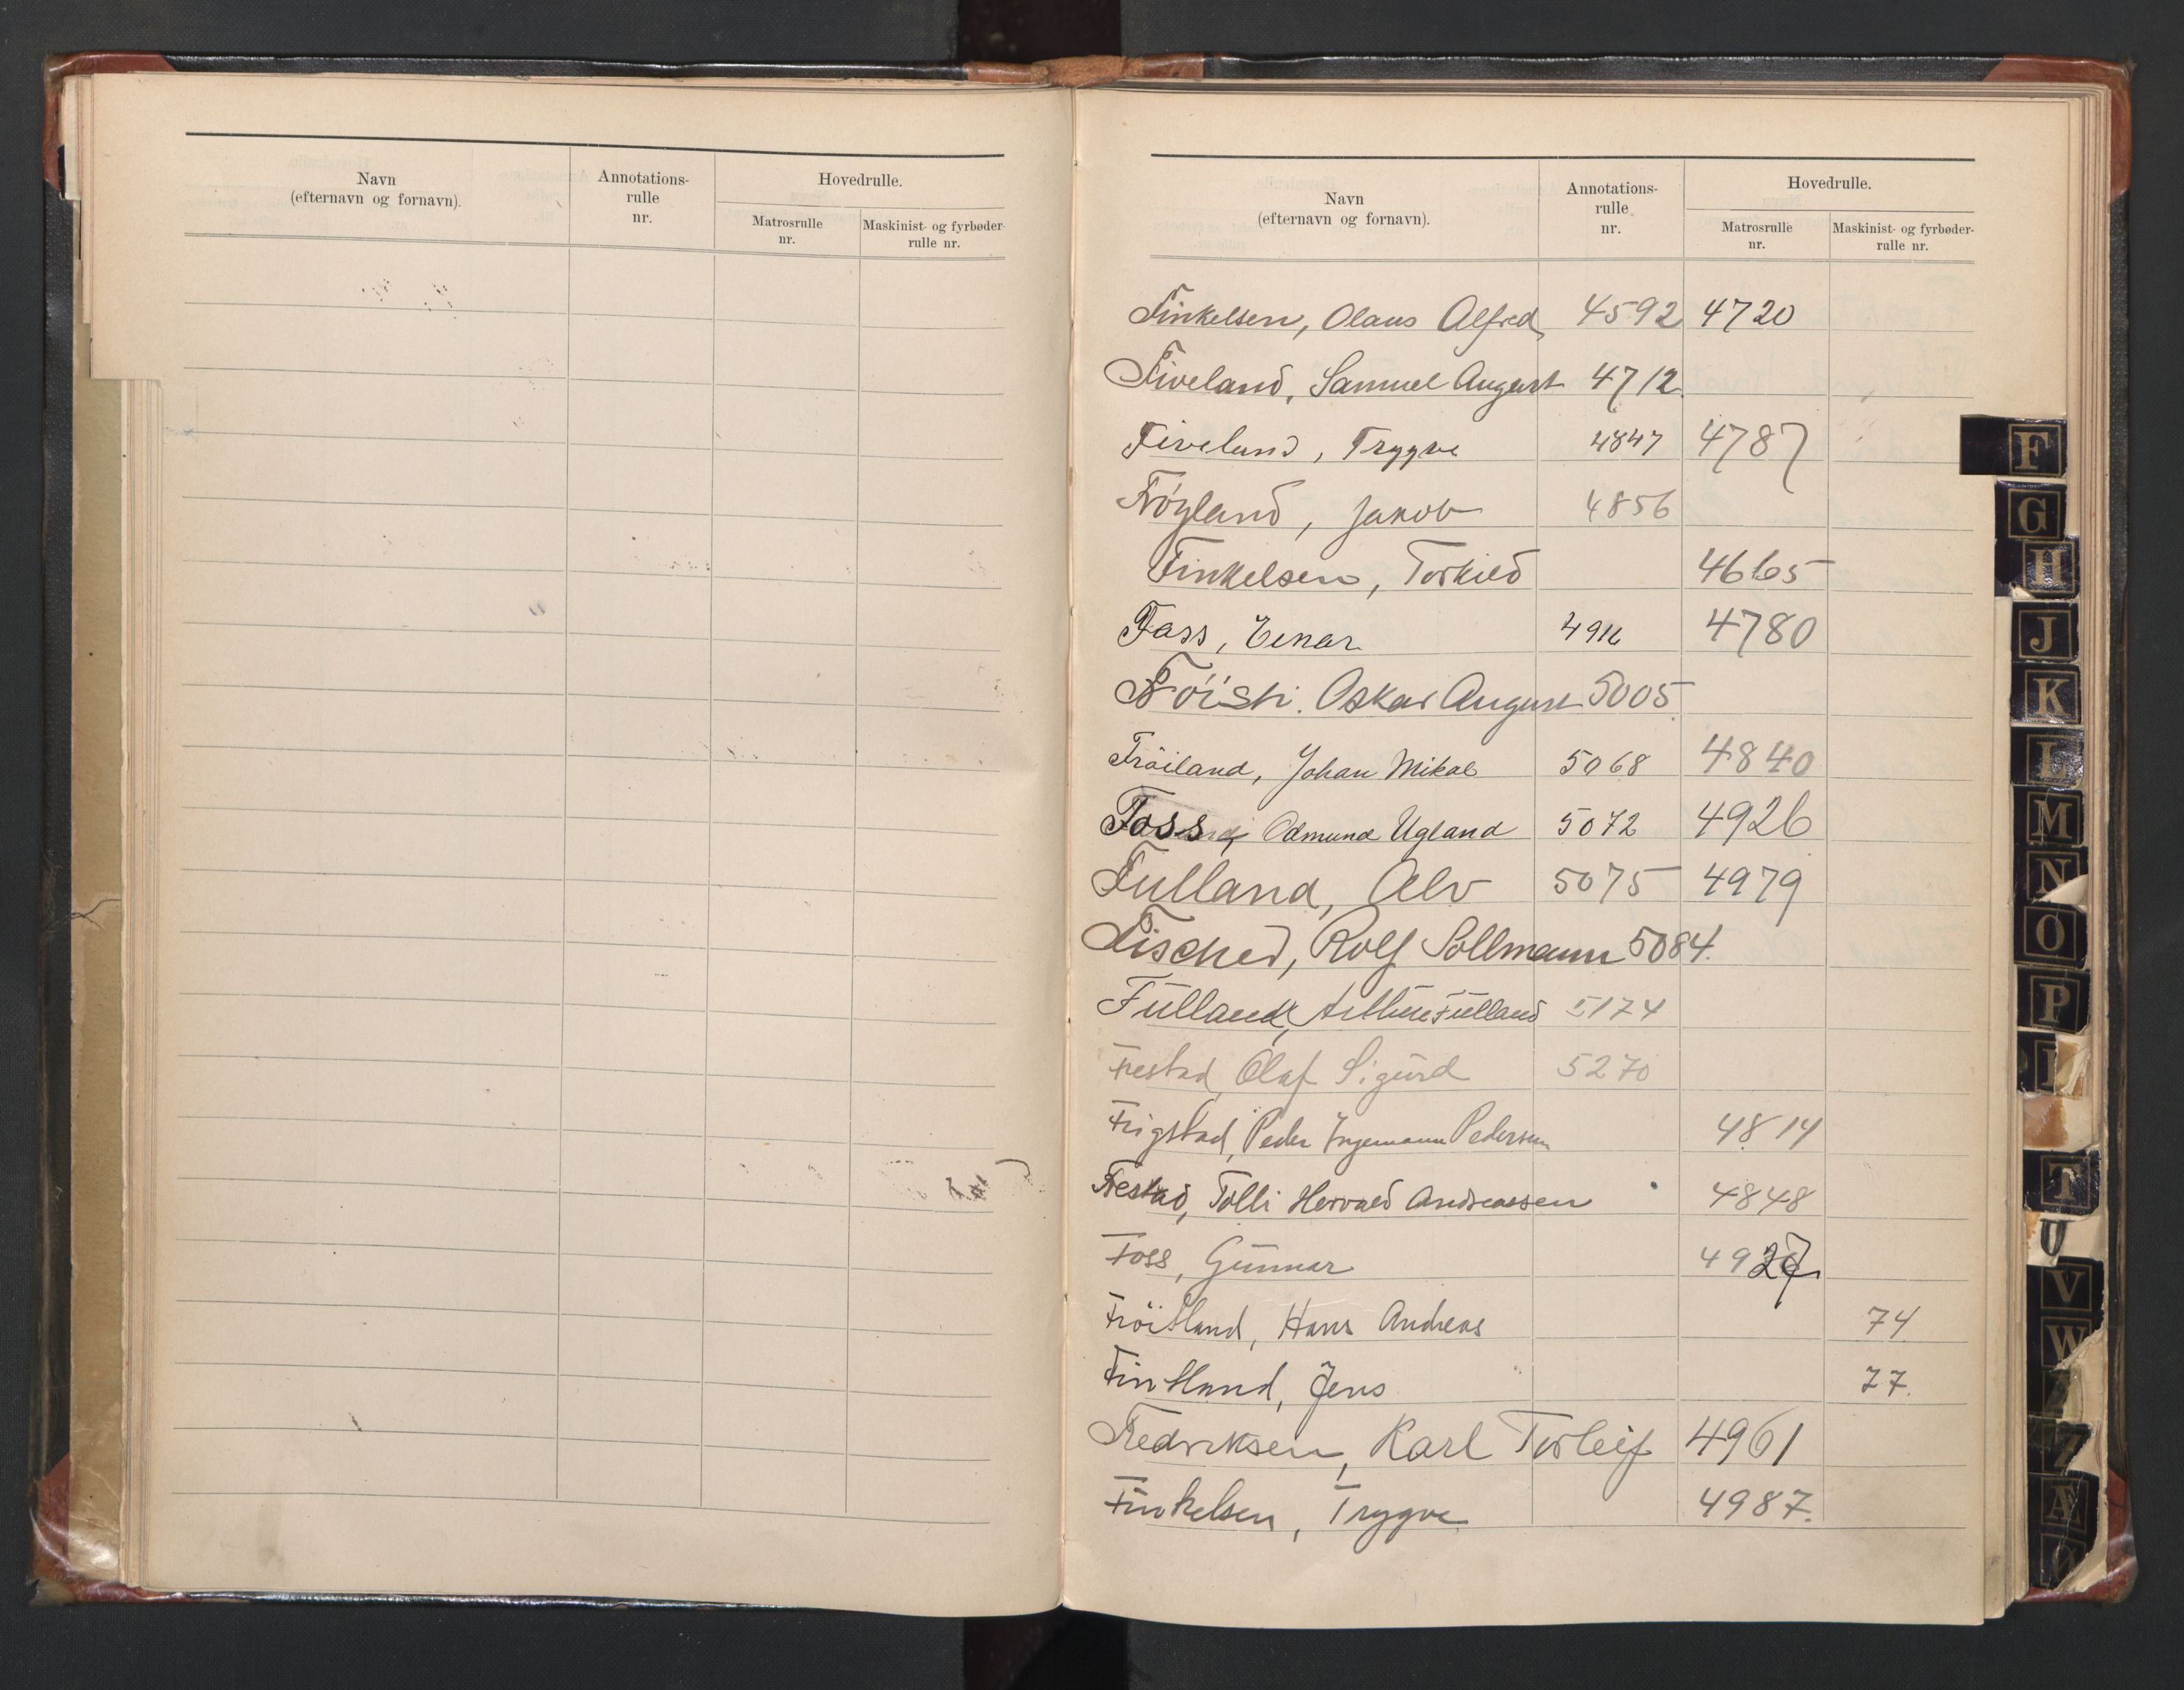 Navn
(efternavn og fornavn).
Annotations-
rulle
nr.
Hovedrulle.
Matrosrulle
nr.
Maskinist- og fyrbøder-
rulle nr.
Navn
(efternavn og fornavn).
Annotations-
rulle
nr.
Hovedrulle.
Matrosrulle
nr.
Maskinist- og fyrbøder-
rulle nr.
Finkelsen, Olaus Alfred 4592 4720
Fiveland, Samuel August 4712
Fiveland, Trygve 4847 4787
Frøyland, Jakob 4856
Finkelsen, Torkild 4665
Fass, Einar 4916 4780
Oskar August 5005
Frøiland, Johan Mikal 5068 4840
Foss, Odmund Ugland 5072 4926
Fulland, Alv 5075 4979
Fischer, Rolf Sollmann 5084.
Fulland, Fulland 5174
Frestad, Olaf Sigurd 5270
Frigstad, Peder Ingemann Pedersen 4814
Frestad, Tolli Hervald Andreassen 4848
Foss, Gunnar 4927
Frøitland, Hans Andreas 74
Fintland, Jens 77.
Fredriksen, Karl Torleif 4961
Finkelsen, Trygve 4987.
F
G
H
J
K
L
M
N
O
P
T
U
V
W
Z
Æ
Ø